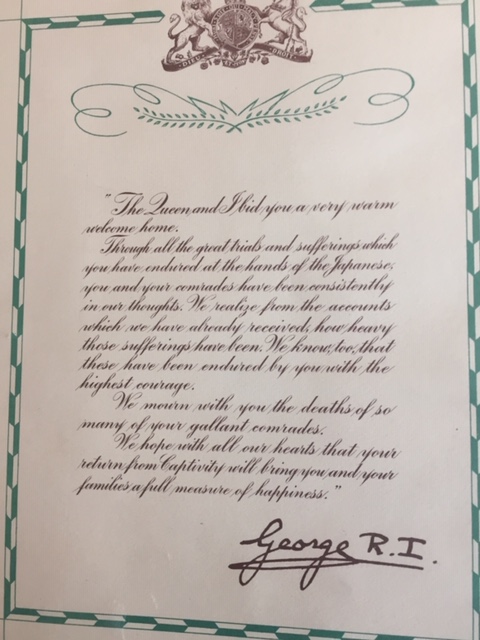 DIEU ET MON DROIT
"The Queen and I bid you a very warm
welcome home.
Through all the great trials and sufferings which
you have endured at the hands of the Japanese,
you and your comrades have been consistently
in our thoughts. We realize from the accounts
which we have already received, how heavy
those sufferings have been. We know, too, that
these have been endured by you with the
highest courage.
We mourn with you the deaths of so
many of your gallant comrades.
We hope with all our hearts that your
return from Captivity will bring you and your
families a full measure of happiness."
George R.I.